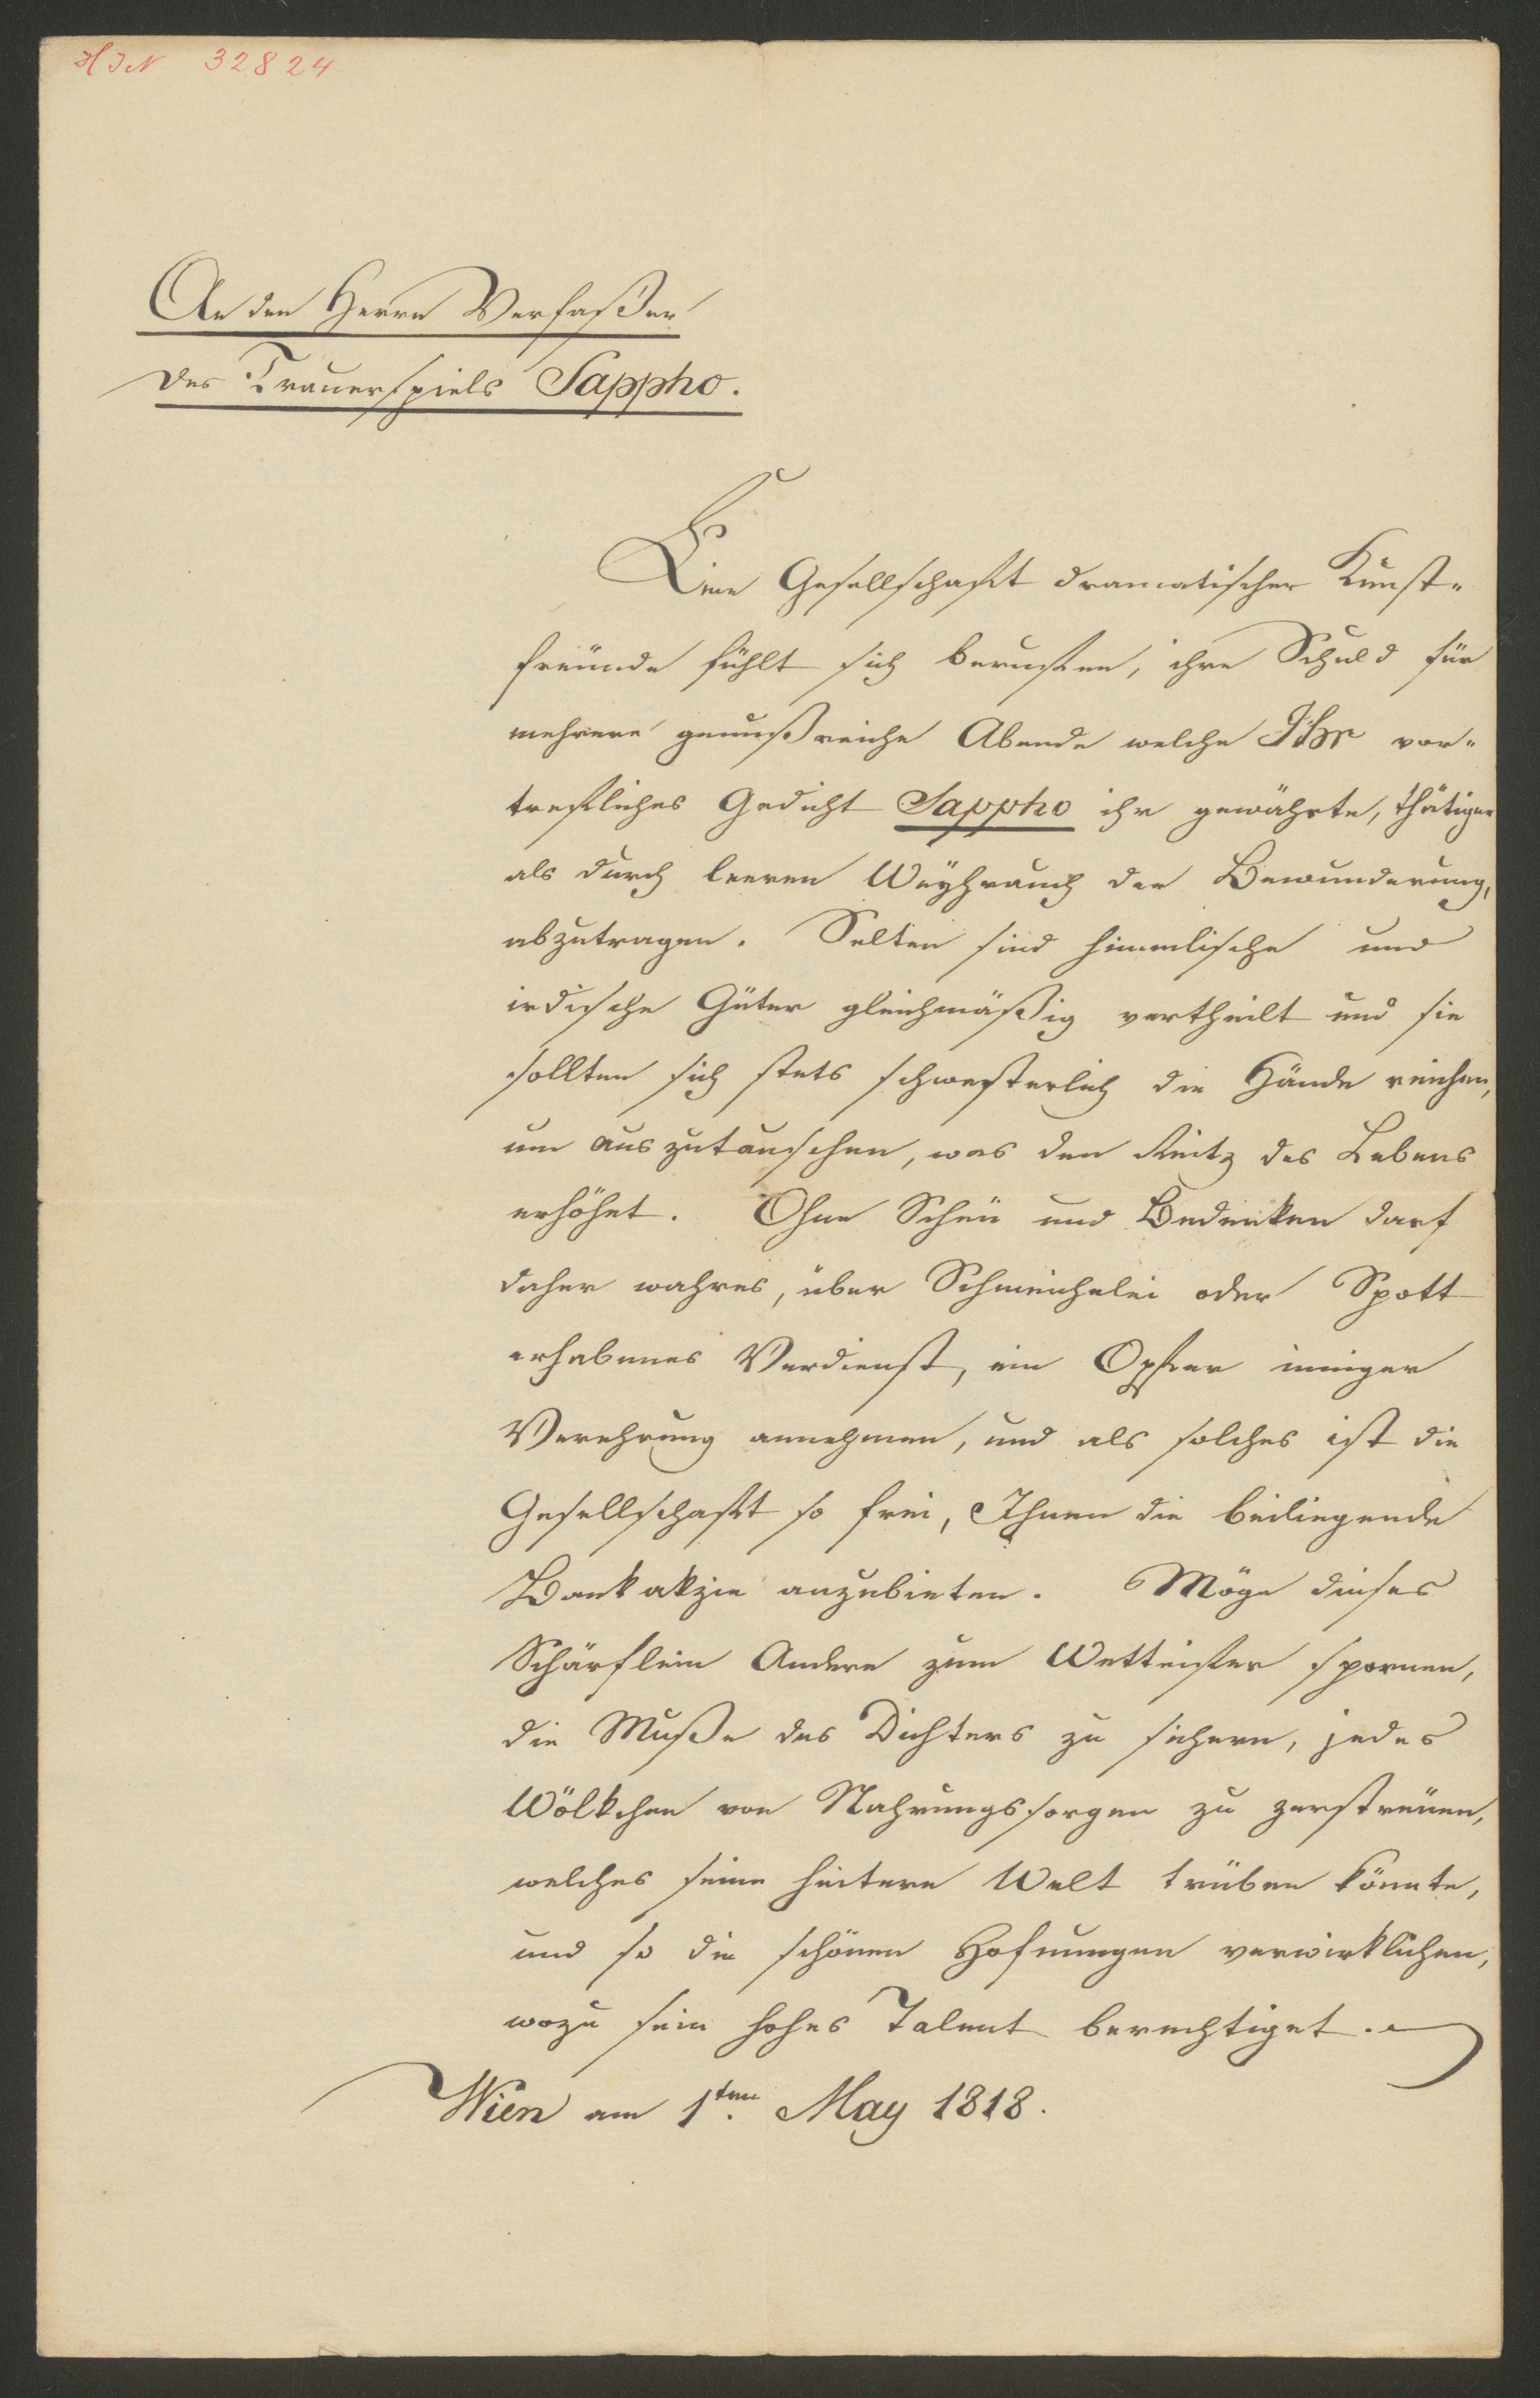 HJN 32824
An den Herrn Verfaßer
des Trauerspiels Sappho.
Eine Gesellschaft dramatischer Kunst-
freünde fühlt sich berufen, ihre Schuld für
mehrere genußreiche Abende welche Ihr vor-
trefliches Gedicht Sappho ihr gewährte, thätiger
als durch leeren Weyhrauch der Bewunderung,
abzutragen. Selten sind himmlische und
irdische Güter gleichmäßig vertheilt und sie
sollten sich stets schwesterlich die Hände reichen,
um auszutauschen, was den Reitz des Lebens
erhöhet. Ohne Scheü und Bedenken darf
daher wahres, über Schmeichelei oder Spott
erhabenes Verdienst, ein Opfer inniger
Verehrung annehmen, und als solches ist die
Gesellschaft so frei, Ihnen die beiliegende
Bankakzie anzubieten. Möge dieses
Schärflein Andere zum Wetteifer spornen,
die Muße des Dichters zu sichern, jedes
Wölkchen von Nahrungssorgen zu zerstreüen,
welches seine heitere Welt trüben könnte,
und so die schönen Hofnungen verwirklichen,
wozu sein hohes Talent berechtiget.
Wien am 1ten. May 1818.